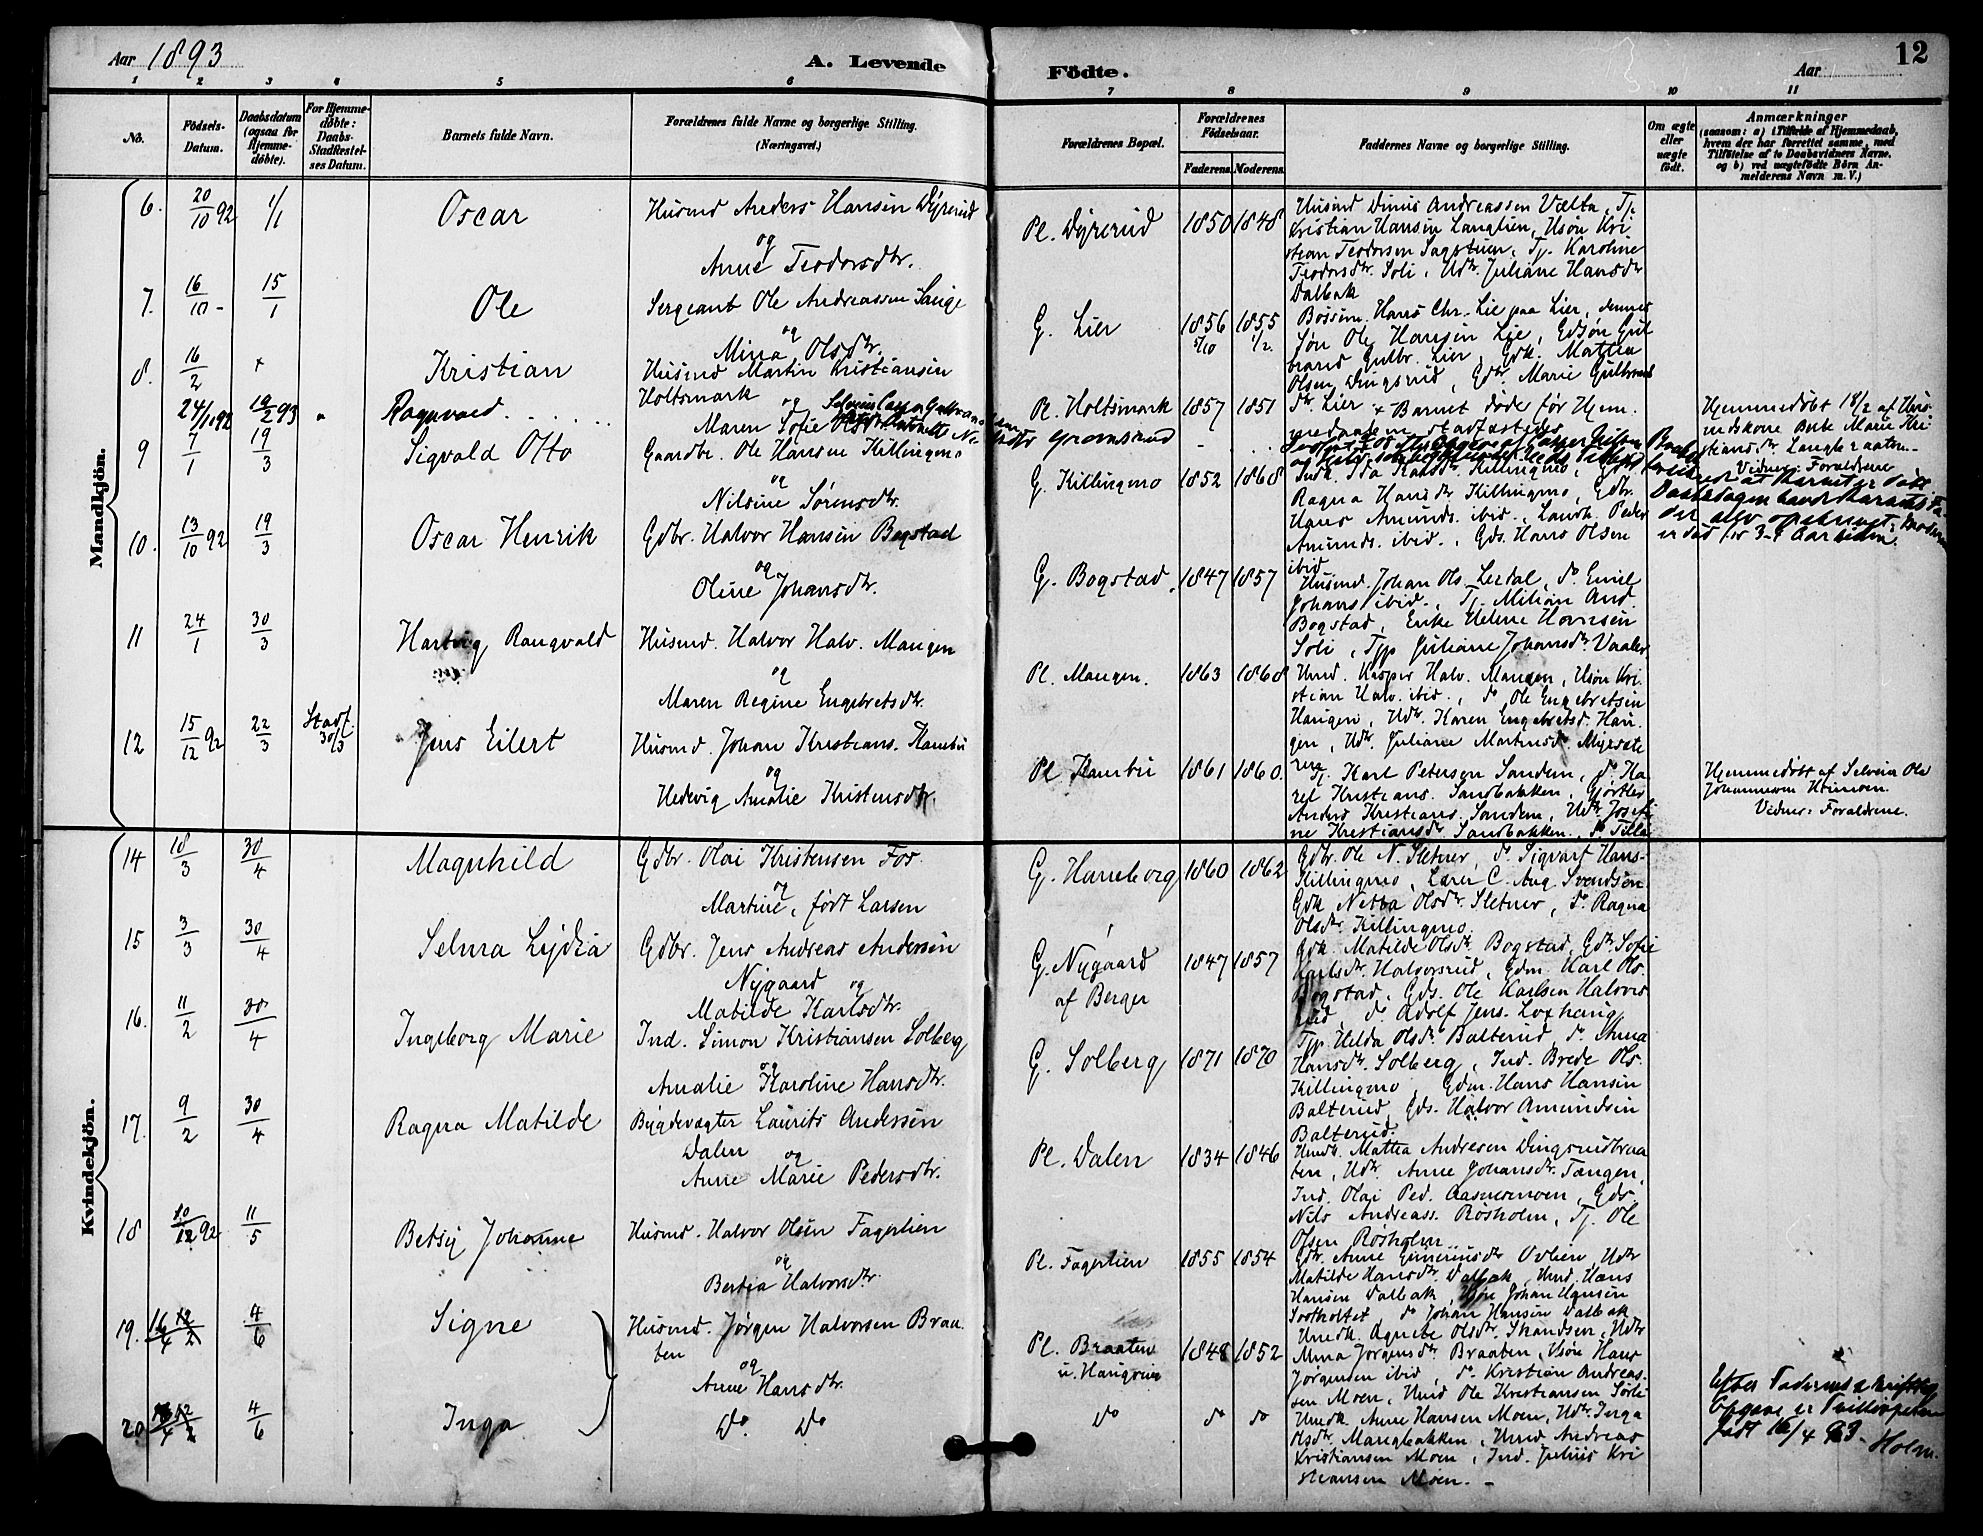 Aar 1893
A. Levende
Födte.
Aar
12
1 2 3 4 5 6 7 8 9 10 11
No.
Födsels-Datum.
Daabsdatum (ogsaa for Hjemme-döbte).
For Hjemme-döbte: Daabs-Stadfæstel-ses Datum.
Barnets fulde Navn.
Forældrenes fulde Navne og borgerlige Stilling. (Næringsvei.)
Forældrenes Bopæl.
Forældrenes Födselsaar.
Faderens. Moderens.
Faddernes Navne og borgerlige Stilling.
Om ægte eller uægte født.
Anmærkninger
(saasom: a) i Tilfælde af Hjemmedaab, hvem der har forrettet samme, med Tilföielse af to Daabsvidners Navne, og b) ved uægtefödte Börn An-melderens Navn m. V.)
Mandkjön.
6. 20/10 92 1/1 Oscar
Husmd Anders Hansen Dyrerud
og
Anne Teodorsdtr.
Pl. Dyrerud 1850 1848
Kristian Hansen Langlien, Usøn Kri
stian Teodorsen Sagstuen, Tj. Karoline
Teodorsdtr. Soli, Udtr. Juliane Hansdtr
Dalbak
7. 16/10 - 15/1 Ole
Sergeant Ole Andreassen Lauge
og
Mina Olsdtr.
G. Lier 1856 5/10 1855 1/2.
Hans Chr. Lie paa Lier, dennes
Søn Ole Hansen Lie, Gdsøn Gul
brand Gulbr. Lier, Gdk. Mathea
Olsen Dingsrud, Gdtr. Marie Gulbrands
dtr. Lier
8. 16/2 + Kristian
Husmd Martin Kristiansen
Holtsmark og
Maren Sofie
Pl. Holtsmark 1857 1851
+ Barnet døde før Hjem
medaaben stadfæstedes
Hjemmedøbt 18/2 af Hus
mdskone Berte Marie Kri
stiansdtr. Langbraaten.
Vidner: Forældrene
24/11 92 19/2 93 " Ragnvald
9 7/1 19/3 Sigvald Otto
Gaardbr. Ole Hansen Killingmo
og
Nilsine Sørensdtr.
G. Killingmo 1852 1868
Ragna Hansdtr Killingmo, Gdbr.
Hans Amunds. ibid., Landh. Peder
Amunds. ibid., Gds. Hans Olsen
ibid
10. 13/10 92 19/3 Oscar Henrik
Gdbr. Halvor Hansen Bogstad
og
Oline Johansdtr.
G. Bogstad. 1847 1857
Husmd. Johan Ols. Lerdal, do Emil
Johans ibid., Tj. Milian And.
Bogstad, Enke Helene Hansen
Soli, Tjp Juliane Johansdtr Vaaler
11 24/1 30/3 Hartvig Rangvald
Husmd. Halvor Halv. Mangen
og
Maren Regine Engebretsdtr.
Pl. Mangen. 1863 1868
Umd. Kasper Halv. Mangen, Usøn Kri
stian Halv. ibid., do Ole Engebretsen
Haugen, Udtr. Karen Engebretsd. Hau
gen, Udtr. Juliane Martinsdtr. Myrsæte
ren
12 15/12 92 22/3 Stadf. 30/3 Jens Eilert
Husmd. Johan Kristians. Kambu
og
Hedevig Amalie Kristensdtr.
Pl Kambu 1861 1860.
Tj. Karl Petersen Sanden, do. Ka
rel Kristians. Sandbakken, Gjørtler
Anders Kristians. Sanden, Udtr. Josefi
ne Kristiansdtr Sandbakken
Hjemmedøbt af Selveier Ole
Vidner: Forældrene.
Kvindekjön.
14 18/3 30/4 Magnhild
Gdbr. Olai Kristensen For
og
Martine, født Larsen
G. Haneborg 1860 1862
Gdbr. Ole N. Sletner, do. Sigvart Hans-
Killingmo, Lærer C. Aug. Svendsen
Gdk Netta Olsdtr. Sletner, do. Ragna
Olsdtr. Killingmo.
15 3/3 30/4 Selma Lydia
Gdbr. Jens Andreas Andersen
Nygaard og
Matilde Karlsdtr.
G. Nygaard
af Berger 1847 1857
Gdk. Matilde Olsdtr. Bogstad, Gdtr. Sofie
Karlsdtr. Halvorsrud, Gdm. Karl Ols.
Bogstad, Gds. Ole Karlsen Halvors
rud, do. Adolf Jens. Loshaug
16. 11/2 30/4 Ingeborg Marie
Ind. Simon Kristiansen Solberg
og
Amalie Karoline Hansdtr.
G. Solberg 1871 1870
Tjp. Helda Olsdtr. Balterud, do. Anna
Hansdtr. Solberg, Ind. Brede Ols.
Killingmo, Gdm. Hans Hansen
Balterud, Gds. Halvor Amundsen
Balterud.
17. 9/2 30/4 Ragna Matilde
Bygdevægter Laurits Andersen
Dalen og
Anne Marie Pedersdtr.
Pl. Dalen 1834 1846
Umdk. Mattea Andresen Dingsrudbraa
ten, Udtr. Anne Johansdtr. Tangen,
Ind. Olai Ped. Aasnesmoen, Gds.
Nils Andreass. Røsholm, Tj. Ole
Olsen Røsholm
18 10/12 92 11/5 Betsy Johanne
Husmd. Halvor Olsen Fagerlien
og
Bertea Halvorsdtr.
Pl. Fagerlien 1855 1854
Matilde Hansdtr. Dalbak, Umd. Hans
Hansen Dalbak, Usøn Johan Hansen
do Johan Hansen Dalbak
19. 16/4 4/6 Signe
Husmd. Jørgen Halvorsen Braa
ten
og
Anne Hansdtr.
Pl. Braaten
u. Haugrim 1848 1852
Umdk. Agnete Olsdtr. Strandsen, Udtr
Mina Jørgensdtr. Braaten, Usøn Hans
Jørgensen ibid, do. Kristian Andreas-
sen Moen, Umd Ole Kristiansen Sørli
20 4/6 Inga
Do. Do
Do do do
Umdk. Anne Hansen Moen, Udtr. Inga
Olsdtr. Mangbakken, Umd Andreas
Kristiansen Moen, Ind. Julius Kri
stiansen Moen. -
Efter Faderens skriftlige
Opgave er Tvillingerne
født 16/4 93- Holm.